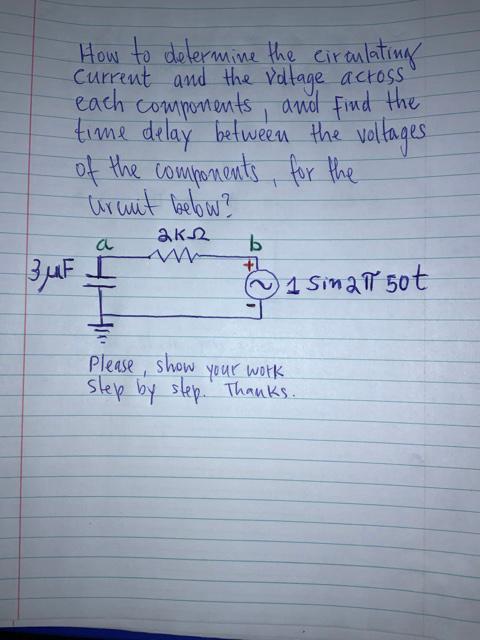 How to determine the circulating
current and the voltage across
each components, and find the
time delay between the voltages
of the components, for the
circuit below?
a 2KΩ b
3μF + 1 Sin2π 50t
-
Please, show your work
Step by step. Thanks.